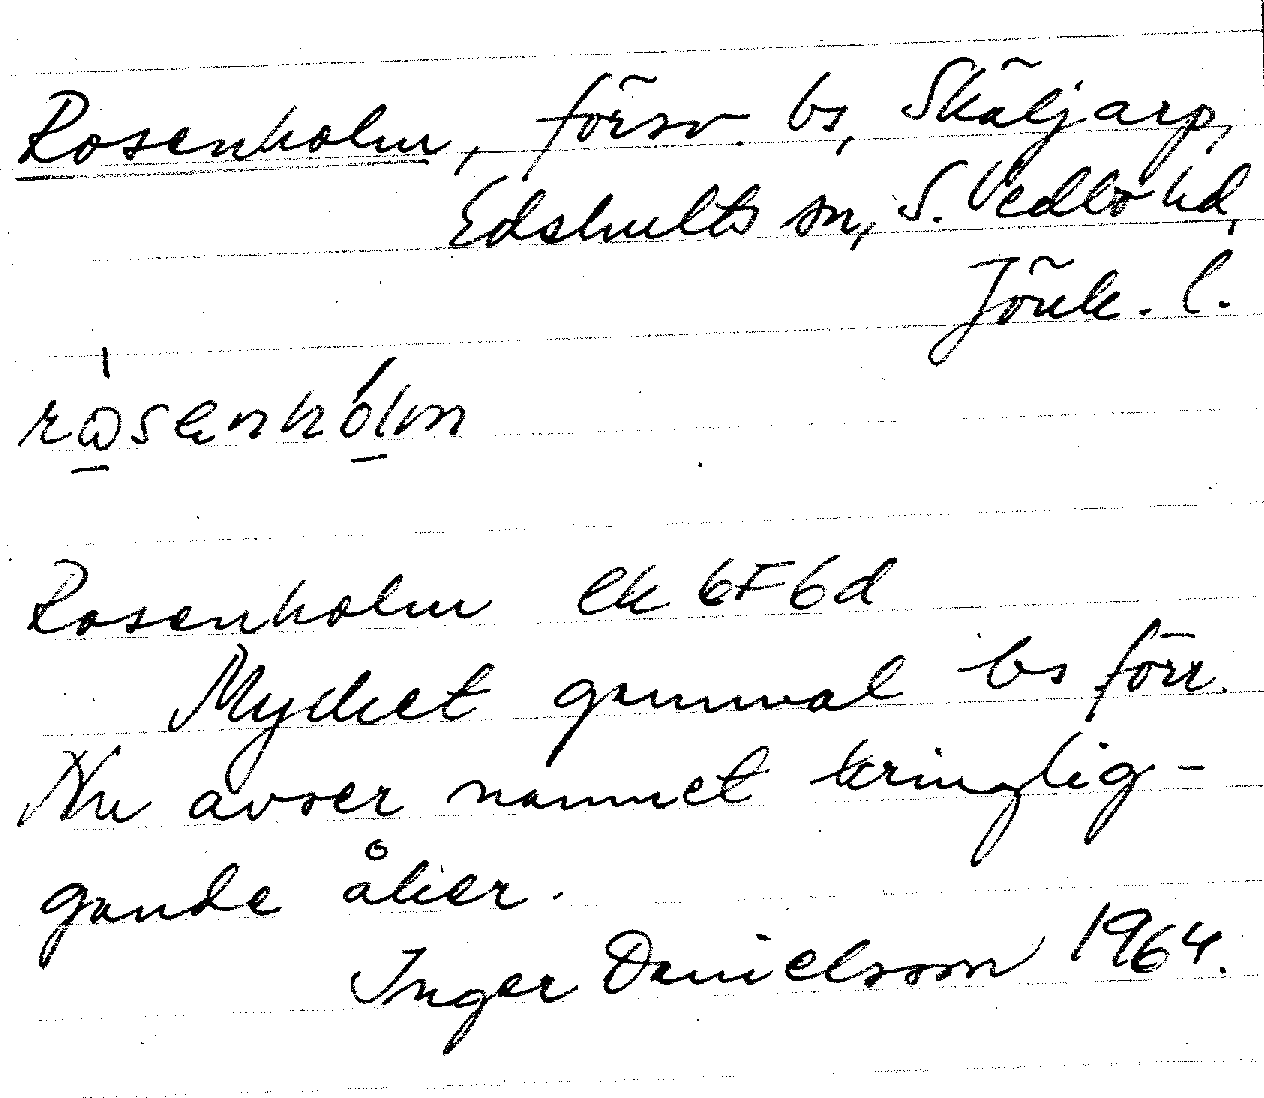 Rosenholm, försv. bs, Skäljarp,
Edshults sn, S. Vedbo hd,
Jönk. l.
rosenhólm
Rosenholm ek 6F6d
Mycket gammal bs förr.
Nu avser namnet kringlig-
gande åker.
Inger Danielsson 1964.